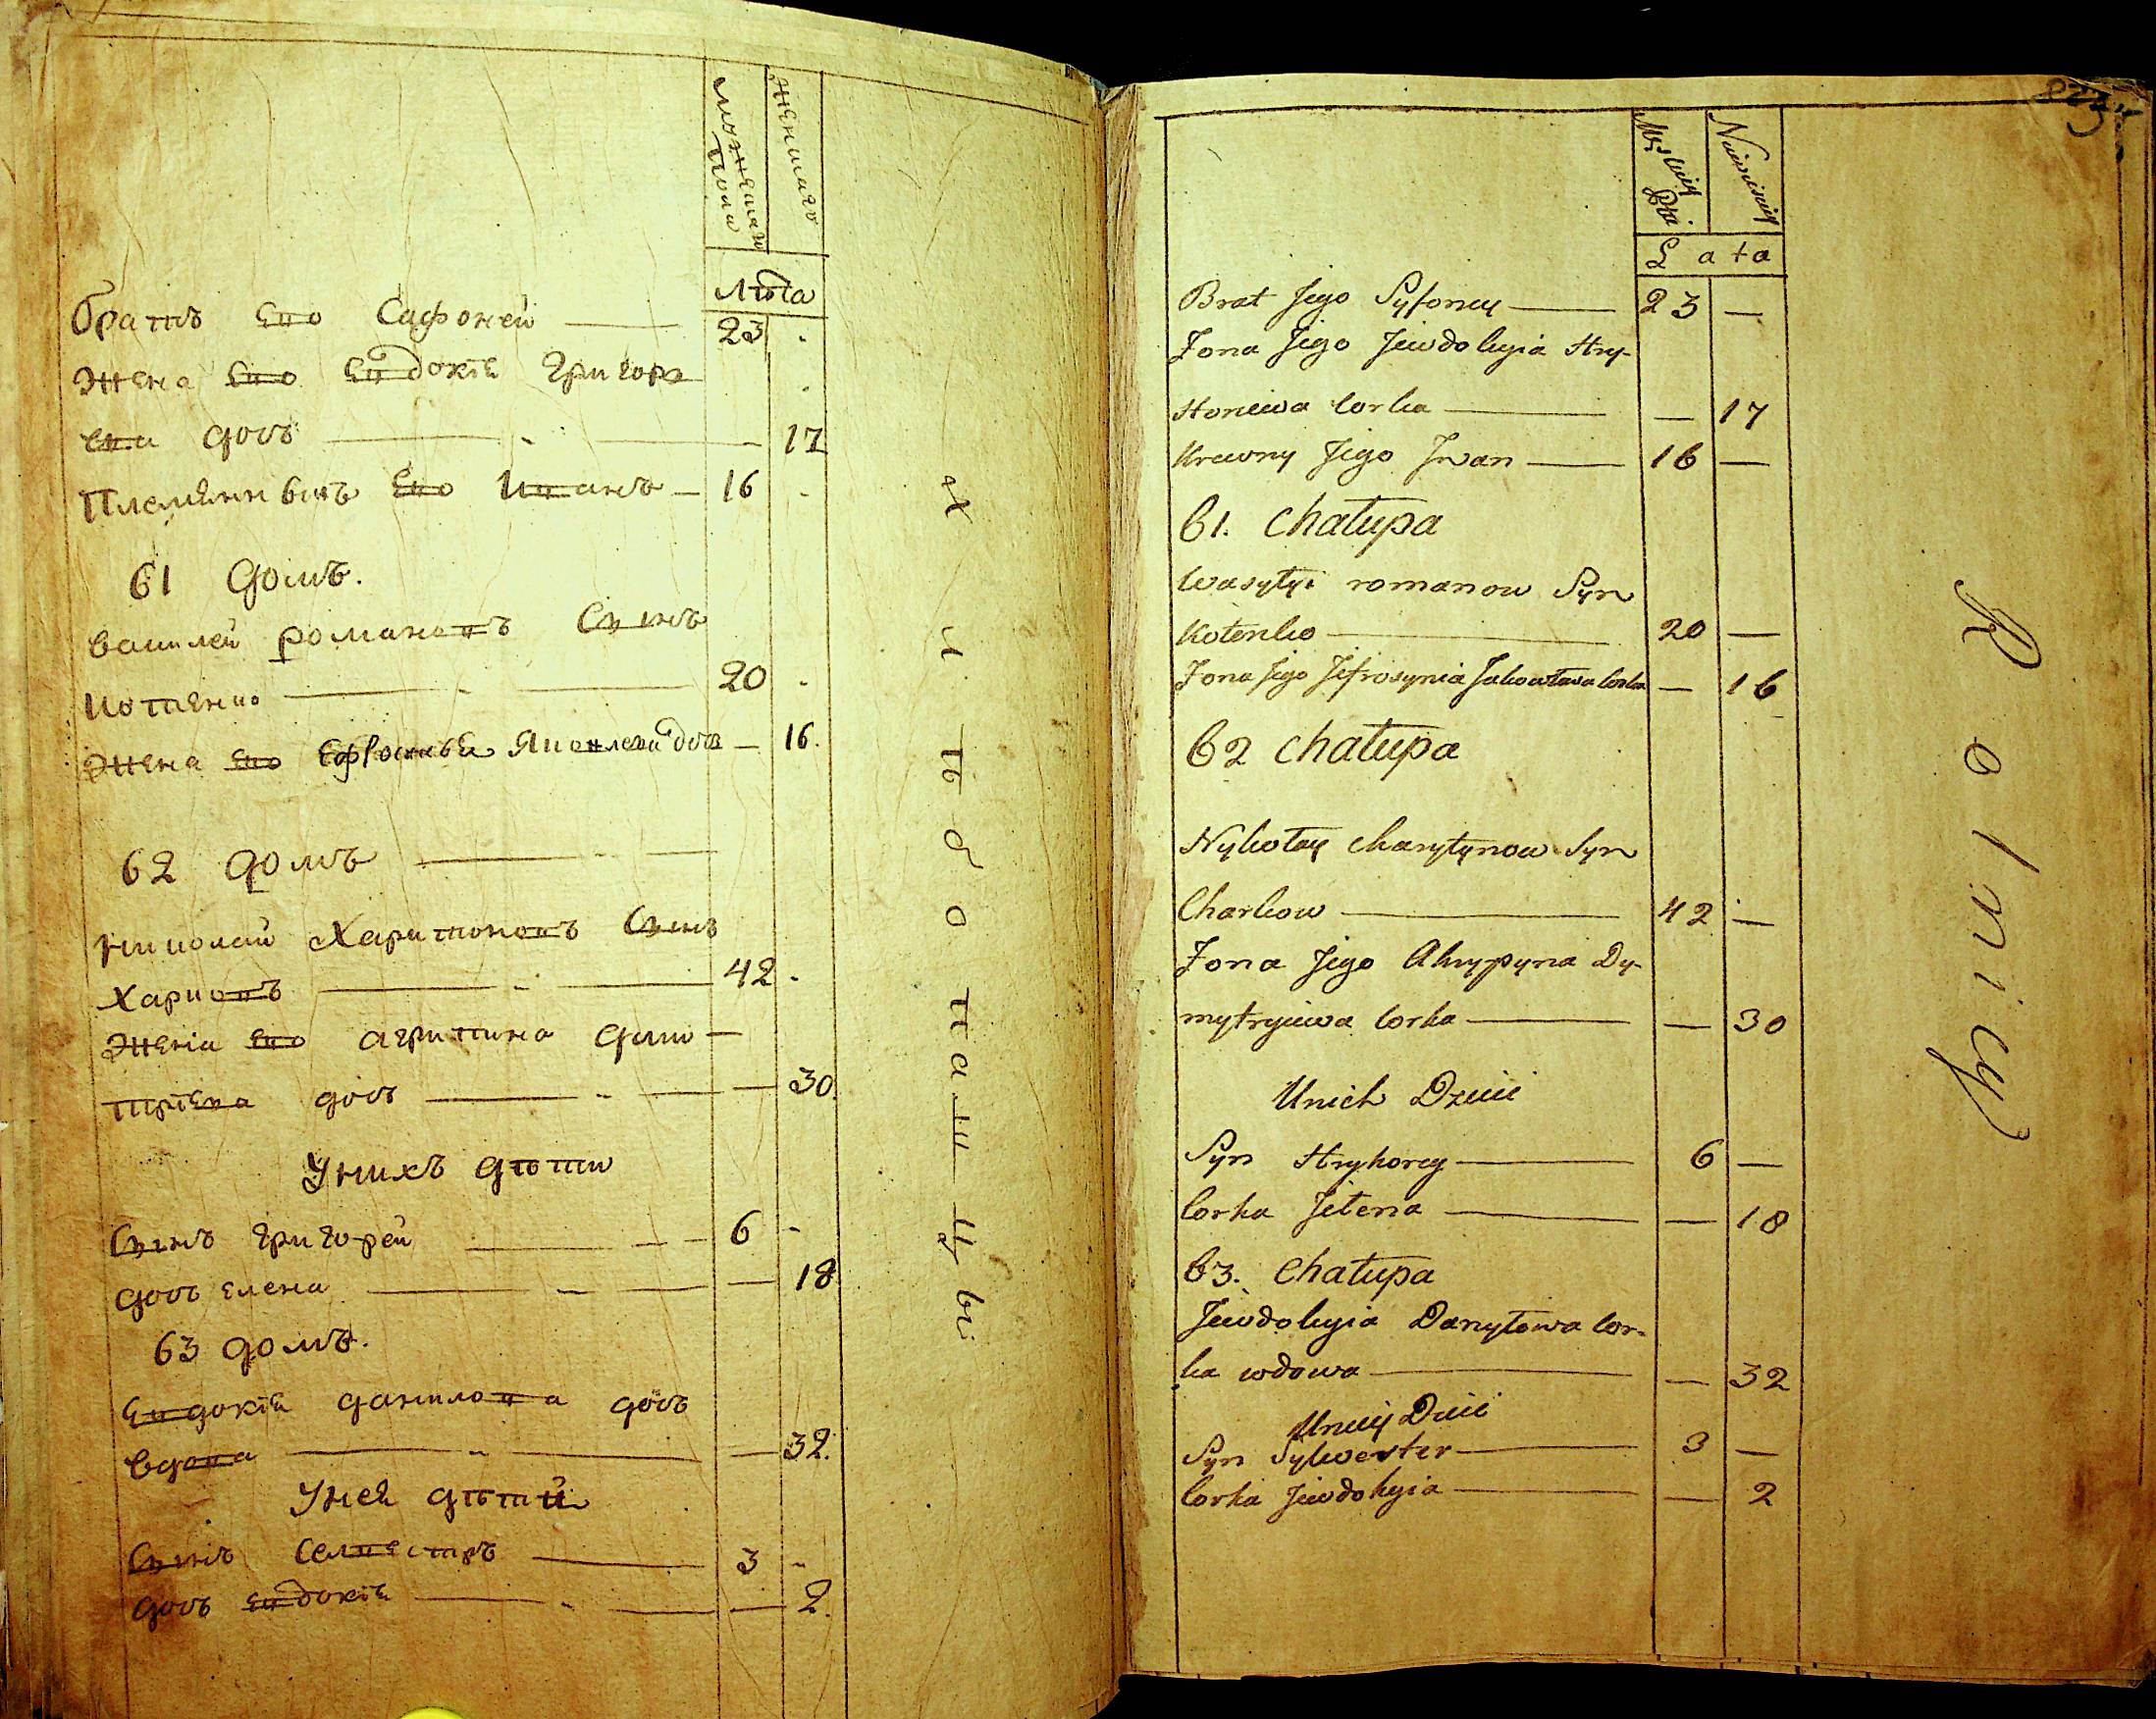 мужескаго пола
женскаго
Лѣта
братъ Его Сафоней 23 .
Жена Его Евдокiѣ Григорь
ева дочъ 17
Племянникъ Его Иванъ 16 .
61 домъ.
Василей романовъ Сынъ
Котенко 20 .
Жена Его Ефросинья Яковлева дочъ 16.
62 домъ
николай Харитоновъ Сынъ
Харковъ 42 .
Жена Его агрипина дми
трiева дочъ 30.
У нихъ дѣти
Сынъ григорей 6
дочъ елена 18
63 домъ.
Евдокiѣ данилова дочъ
вдова 32.
У ней дѣтѣй
Сынъ Селивестръ 3
дочъ Евдокiѣ 2.
хлѣбопашцы
Męskiey Płci
Niewieściey
Lata
Brat Jego Syfoney 23 —
Żona Jego Jewdokyia Hry-
Horiewa Corka — 17
Krewny Jego Jwan 16 —
61. Chałupa
Wasyłyi romanow Syn
Kotenko 20 —
Żona Jego Jefrosynia Jakowława Corka — 16
62 Chałupa
Nykołay Charytynow Syn
Charkow 42 —
Żona Jego Ahrypyna Dy-
mytryiewa Corka — 30
Unich Dzieci
Syn Hryhorey 6 —
Corka Jełena — 18
63. Chałupa
Jewdokyia Danyłowa Cor-
ka wdowa — 32
Uniey Dzieci
Syn Sylwester 3 —
Corka Jewdokyia — 2
Rolnicy